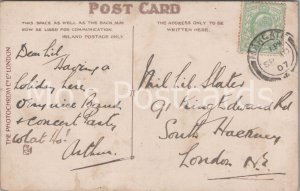 POST CARD
THIS SPACE AS WELL AS THE BACK MAY
NOW BE USED FOR COMMUNICATION.
INLAND POSTAGE ONLY.
THE ADDRESS ONLY TO BE
WRITTEN HERE.
THE PHOTOCHROM CO LTD LONDON
MARGATE
SP
07
Dear Lil,
Having a
holiday here,
nice
& concert Party
what Ho!
Arthur.
Miss Lil. Slater
9 King Edward Rd
South Hackney
London N.E.